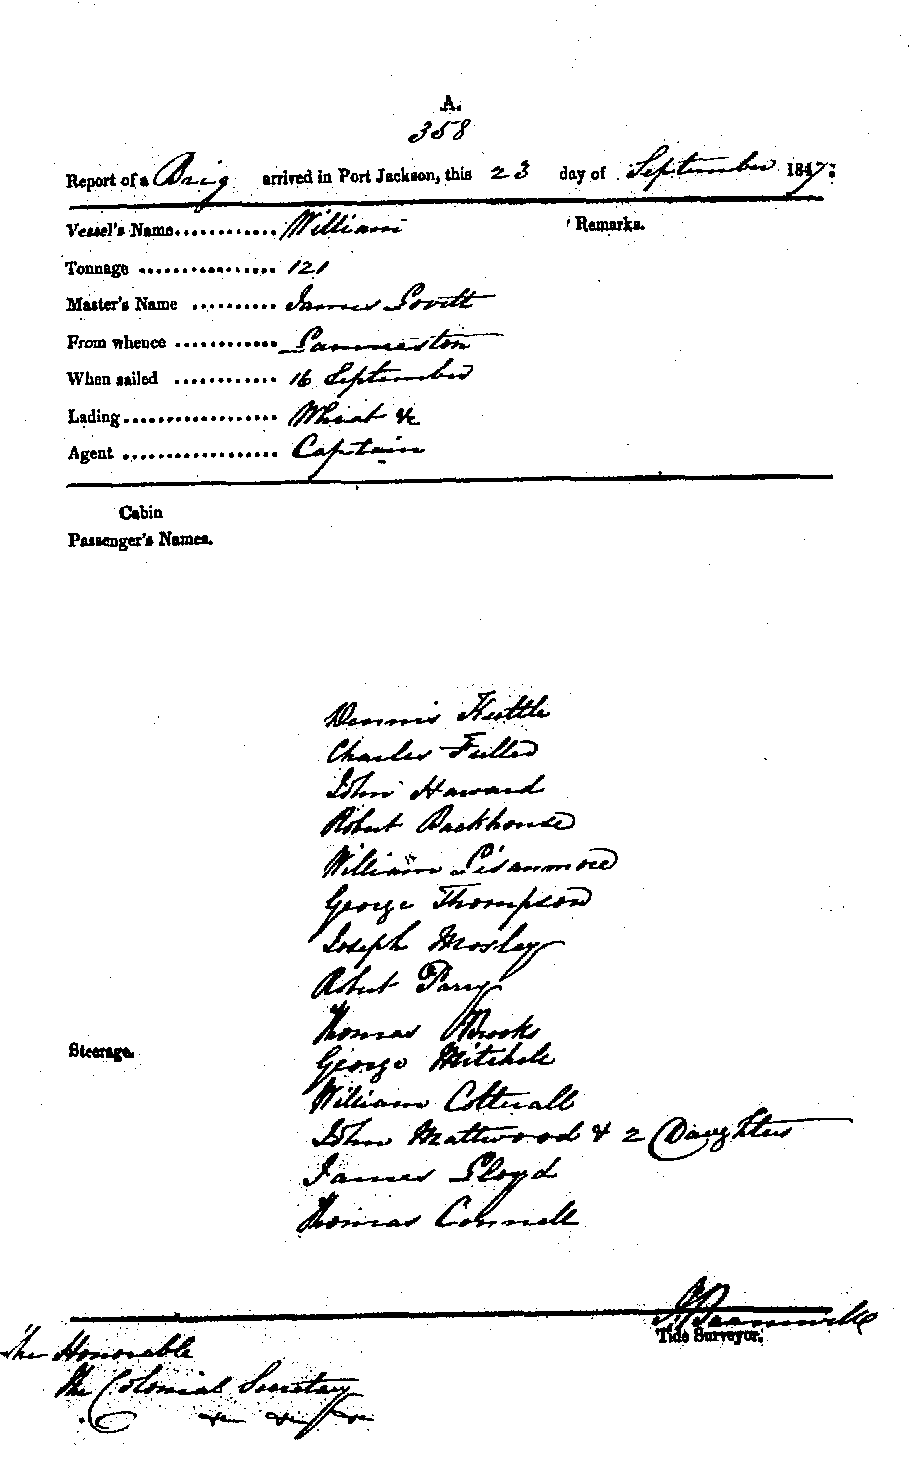 A.
358
Report of a Brig arrived in Port Jackson, this 23 day of September 1847:
Vessel's Name............ William Remarks.
Tonnage ................ 121
Master's Name .......... James Lovett
From whence ............ Launceston
When sailed ............ 16 September
Lading.................. Wheat &c
Agent .................. Captain
Cabin
Passenger's Names.
Dennis Kettle
Charles Fuller
John Haward
Robert Backhouse
William
George Thompson
Joseph Mosley
Robert Parry
Thomas Brooks
Steerage.
George Mitchele
William Cotterall
John Mattwood & 2 Daughters
James Lloyd
Thomas Connell
Tide Surveyor.
The Honorable
The Colonial Secretary